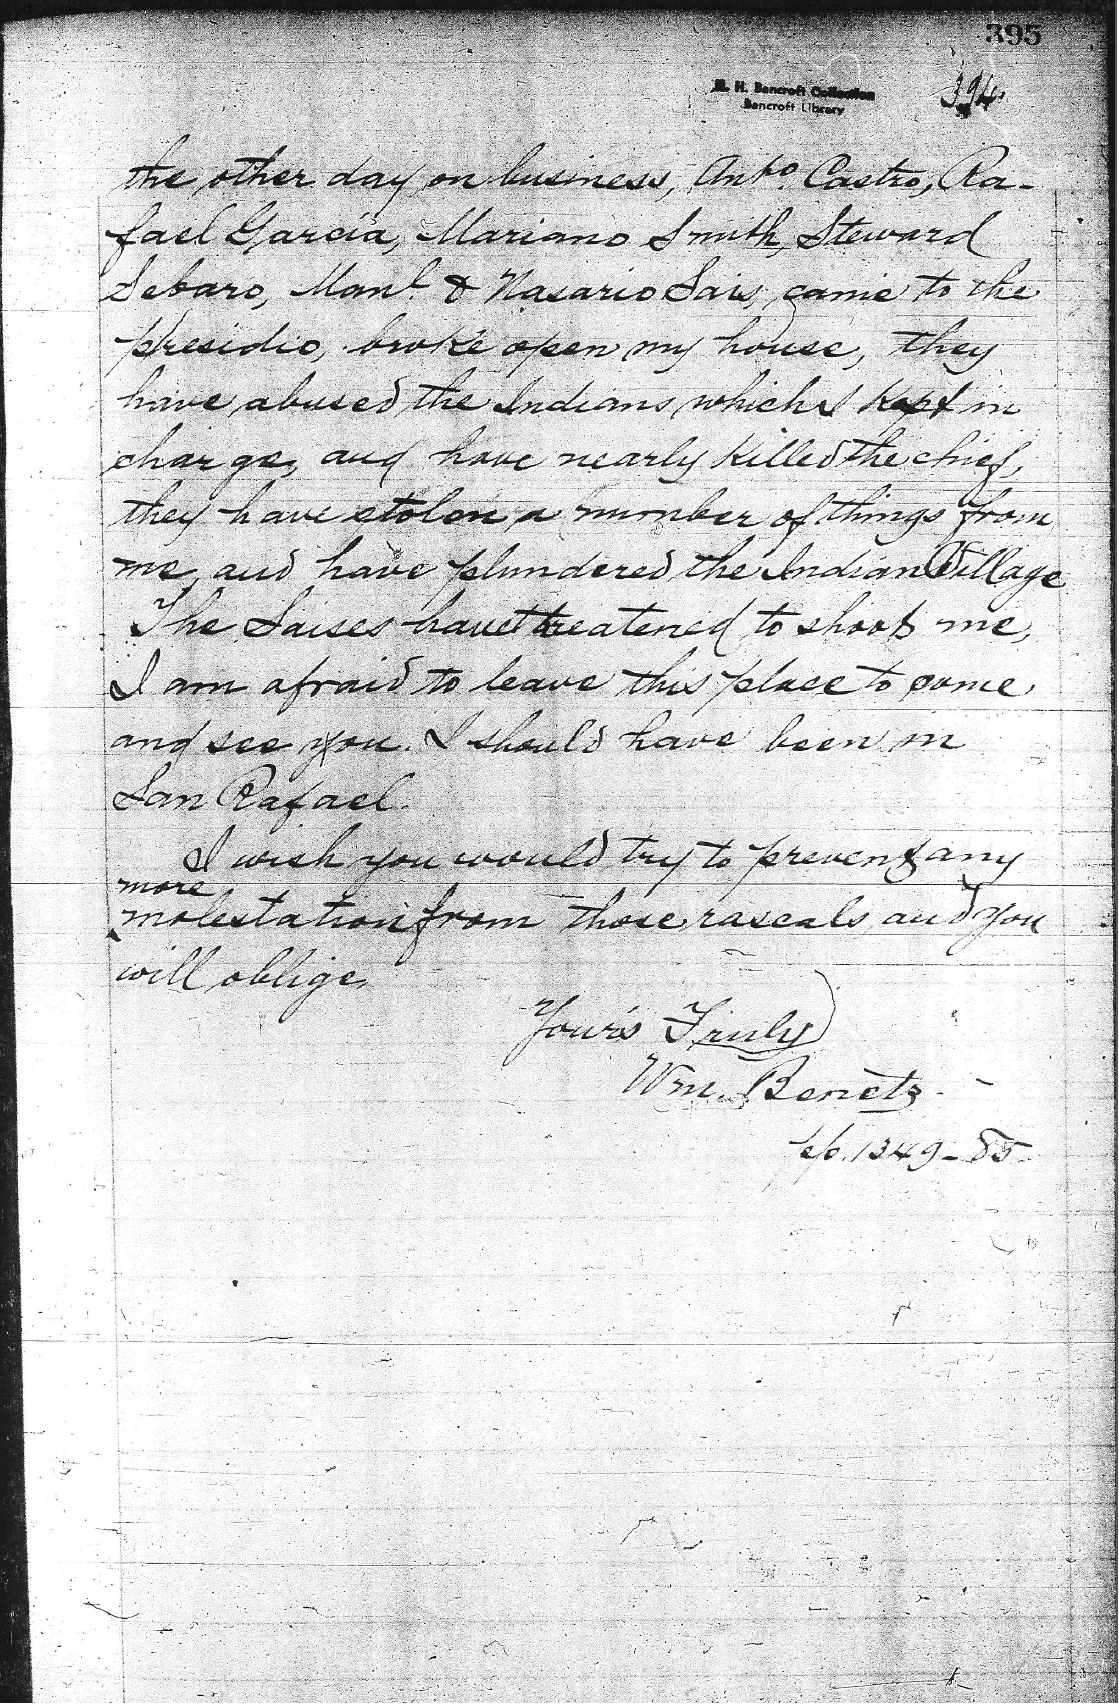 395
H. H. Bancroft Collection
Bancroft Library
394.
the other day on business, Anto. Castro, Ra-
fael Garcia, Mariano Smith, Steward
Sebaro, Manl. & Nasario Sais, came to the
presidio, broke open my house, they
have abused the Indians which I kept in
charge, and have nearly killed the chief,
they have stolen a number of things from
me, and have plundered the Indian Village
The Saises have treatened to shoot me,
I am afraid to leave this place to come
and see you. I should have been in
San Rafael.
I wish you would try to prevent any
more
molestation from those rascals, and you
will oblige,
Your's Truly
Wm. Benetz
1849-55